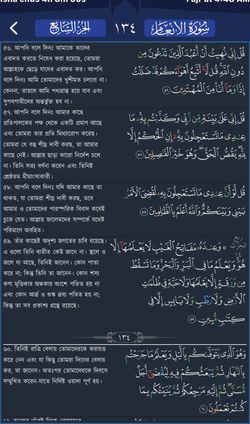 سُورَةُ الأنعَام
١٣٤
الجزء السابع
৫৬. আপনি বলে দিনঃ আমাকে তাদের
এবাদত করতে নিষেধ করা হয়েছে, তোমরা
আল্লাহকে ছেড়ে যাদের এবাদত কর। আপনি
বলে দিনঃ আমি তোমাদের খুশীমত চলবো না।
কেননা, তাহলে আমি পথভ্রান্ত হয়ে যাব এবং
সুপথগামীদের অন্তর্ভুক্ত হব না।
قُلْ إِنِّي نُهِيتُ أَنْ أَعْبُدَ الَّذِينَ تَدْعُونَ مِن
دُونِ اللَّهِ قُل لَّا أَتَّبِعُ أَهْوَاءَكُمْ قَدْ ضَلَلْتُ
إِذًا وَمَا أَنَا مِنَ الْمُهْتَدِينَ ٥٦
৫৭. আপনি বলে দিনঃ আমার কাছে
প্রতিপালকের পক্ষ থেকে একটি প্রমাণ আছে
এবং তোমরা তার প্রতি মিথ্যারোপ করেছ।
তোমরা যে বস্তু শীঘ্র দাবী করছ, তা আমার
কাছে নেই। আল্লাহ ছাড়া কারো নির্দেশ চলে
না। তিনি সত্য বর্ণনা করেন এবং তিনিই
শ্রেষ্ঠতম মীমাংসাকারী।
قُلْ إِنِّي عَلَىٰ بَيِّنَةٍ مِّن رَّبِّي وَكَذَّبْتُم بِهِ مَا
عِندِي مَا تَسْتَعْجِلُونَ بِهِ إِنِ الْحُكْمُ إِلَّا
لِلَّهِ يَقُصُّ الْحَقَّ وَهُوَ خَيْرُ الْفَاصِلِينَ ٥٧
৫৮. আপনি বলে দিনঃ যদি আমার কাছে তা
থাকত, যা তোমরা শীঘ্র দাবী করছ, তবে
আমার ও তোমাদের পারস্পরিক বিবাদ কবেই
চুকে যেত। আল্লাহ জালেমদের সম্পর্কে যথেষ্ট
পরিমাণে অবহিত।
قُل لَّوْ أَنَّ عِندِي مَا تَسْتَعْجِلُونَ بِهِ لَقُضِيَ الْأَمْرُ
بَيْنِي وَبَيْنَكُمْ وَاللَّهُ أَعْلَمُ بِالظَّالِمِينَ ٥٨
৫৯. তাঁর কাছেই অদৃশ্য জগতের চাবি রয়েছে।
এ গুলো তিনি ব্যতীত কেউ জানে না। স্থলে ও
জলে যা আছে, তিনিই জানেন। কোন পাতা
ঝরে না; কিন্তু তিনি তা জানেন। কোন শস্য
কণা মৃত্তিকার অন্ধকার অংশে পতিত হয় না
এবং কোন আর্দ্র ও শুষ্ক দ্রব্য পতিত হয় না;
কিন্তু তা সব প্রকাশ্য গ্রন্থে রয়েছে।
وَعِندَهُ مَفَاتِحُ الْغَيْبِ لَا يَعْلَمُهَا إِلَّا
هُوَ وَيَعْلَمُ مَا فِي الْبَرِّ وَالْبَحْرِ وَمَا تَسْقُطُ
مِن وَرَقَةٍ إِلَّا يَعْلَمُهَا وَلَا حَبَّةٍ فِي ظُلُمَاتِ
الْأَرْضِ وَلَا رَطْبٍ وَلَا يَابِسٍ إِلَّا فِي
كِتَابٍ مُّبِينٍ ٥٩
١٣٥
৬০. তিনিই রাত্রি বেলায় তোমাদেরকে করায়ত্ত
করে নেন এবং যা কিছু তোমরা দিনের বেলায়
কর, তা জানেন। অতঃপর তোমাদেরকে দিবসে
সম্মুখিত করেন-যাতে নির্দিষ্ট ওয়াদা পূর্ণ হয়।
وَهُوَ الَّذِي يَتَوَفَّاكُم بِاللَّيْلِ وَيَعْلَمُ مَا جَرَحْتُم
بِالنَّهَارِ ثُمَّ يَبْعَثُكُمْ فِيهِ لِيُقْضَىٰ أَجَلٌ
مُّسَمًّى ثُمَّ إِلَيْهِ مَرْجِعُكُمْ ثُمَّ يُنَبِّئُكُم بِمَا
كُنتُمْ تَعْمَلُونَ ٦٠